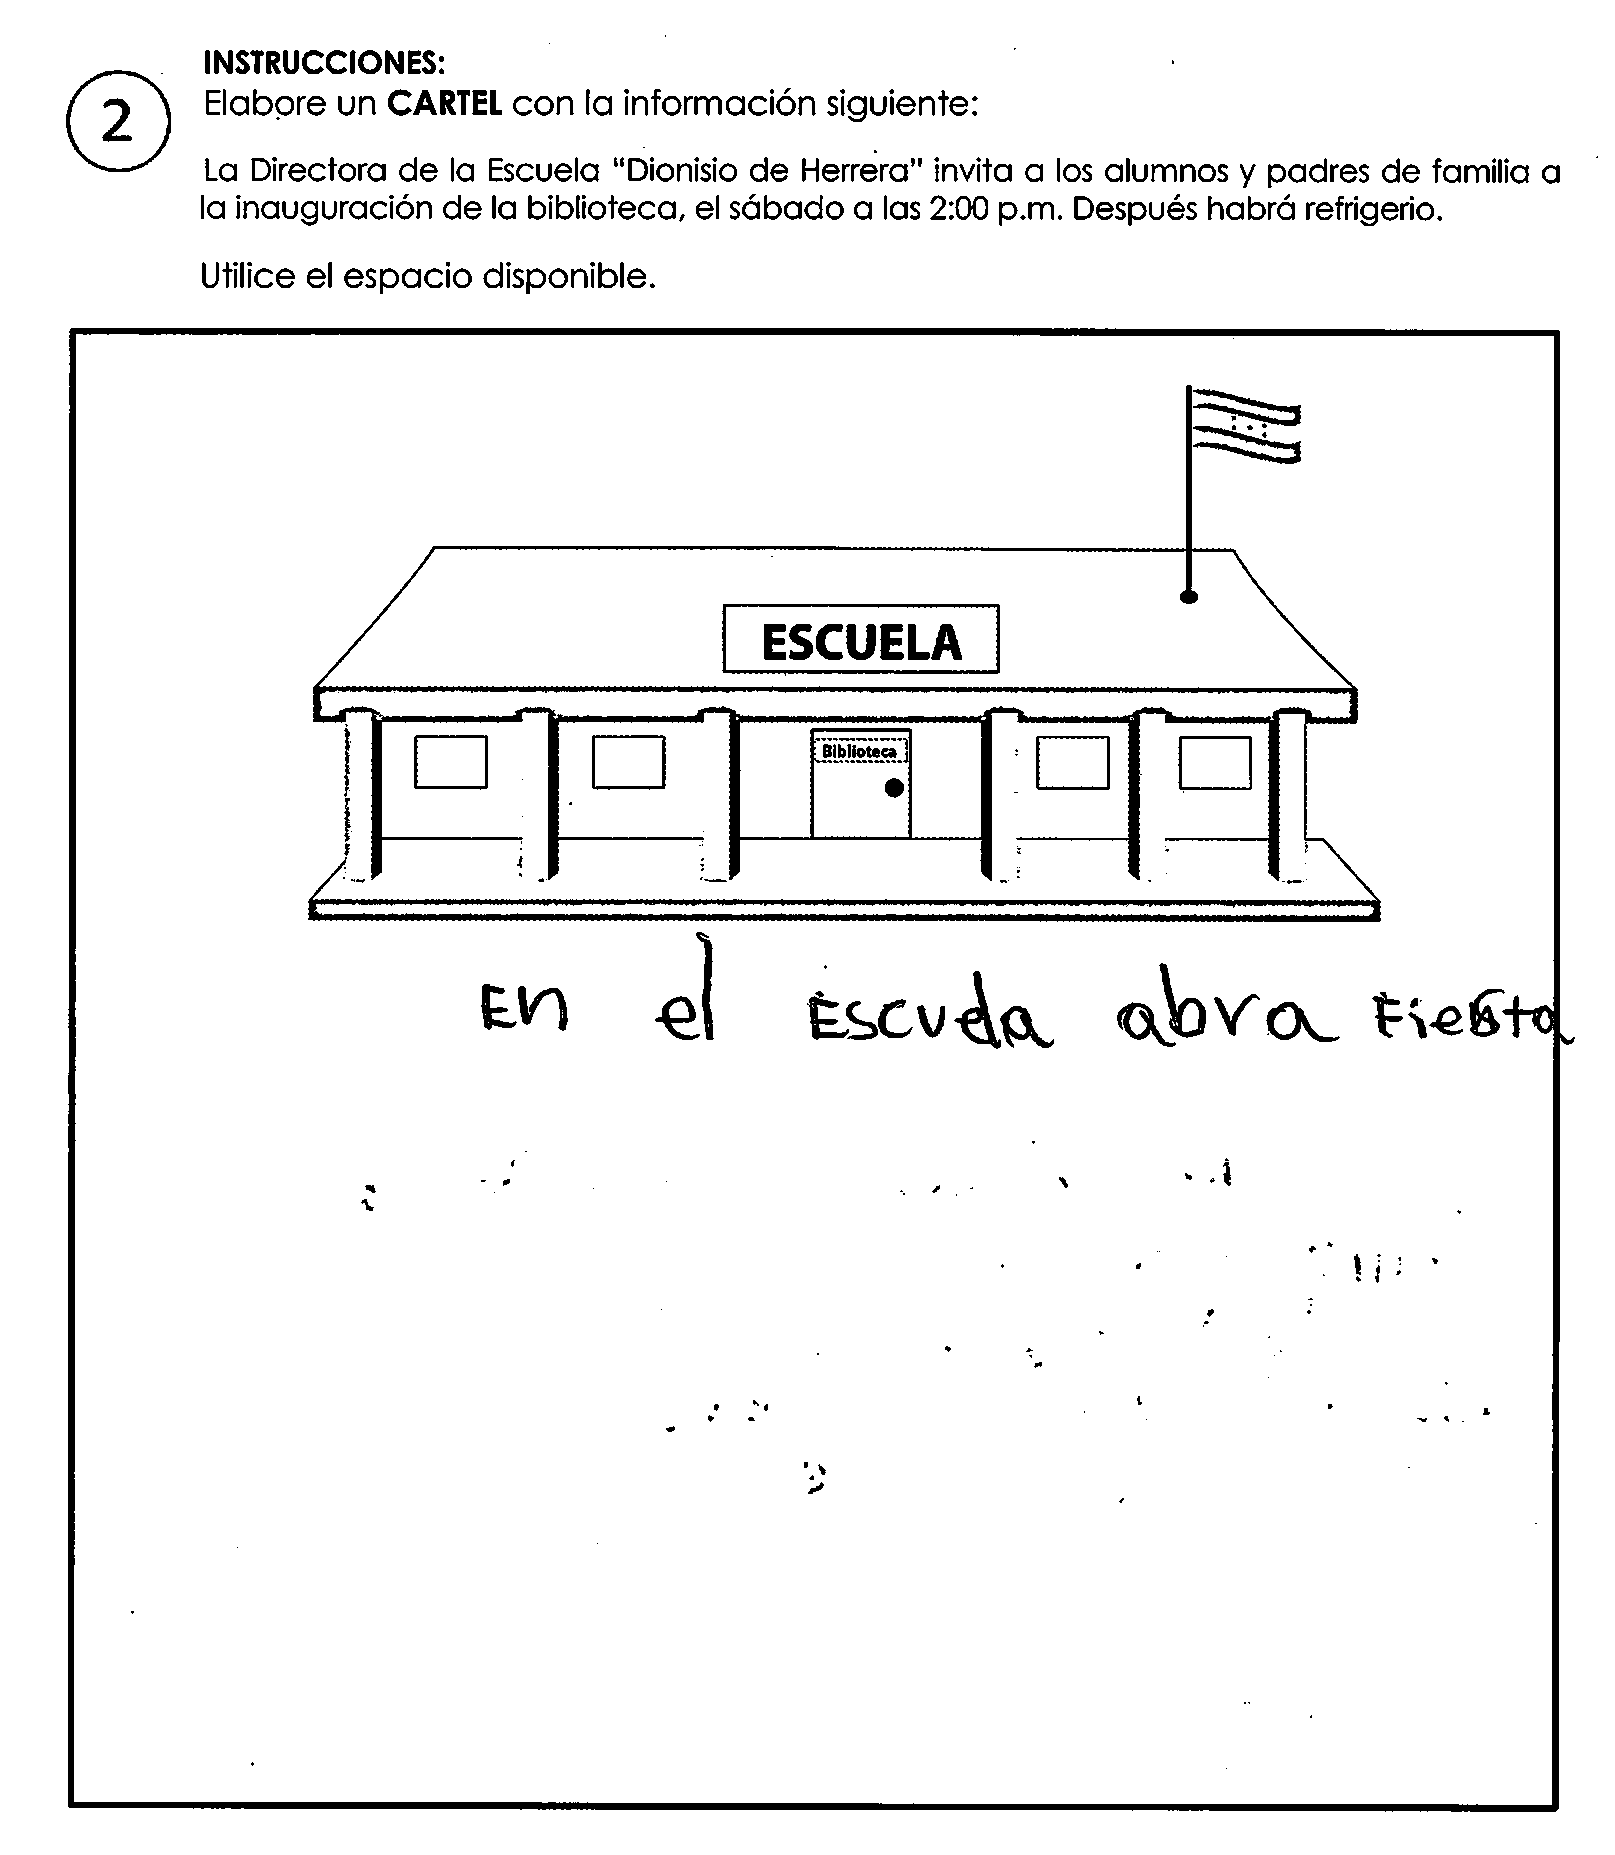 INSTRUCCIONES:
2
Elabore un CARTEL con la información siguiente:
La Directora de la Escuela "Dionisio de Herrera" invita a los alumnos y padres de familia a
la inauguración de la biblioteca, el sábado a las 2:00 p.m. Después habrá refrigerio.
Utilice el espacio disponible.
ESCUELA
Biblioteca
En el Escuela abra Fiesta